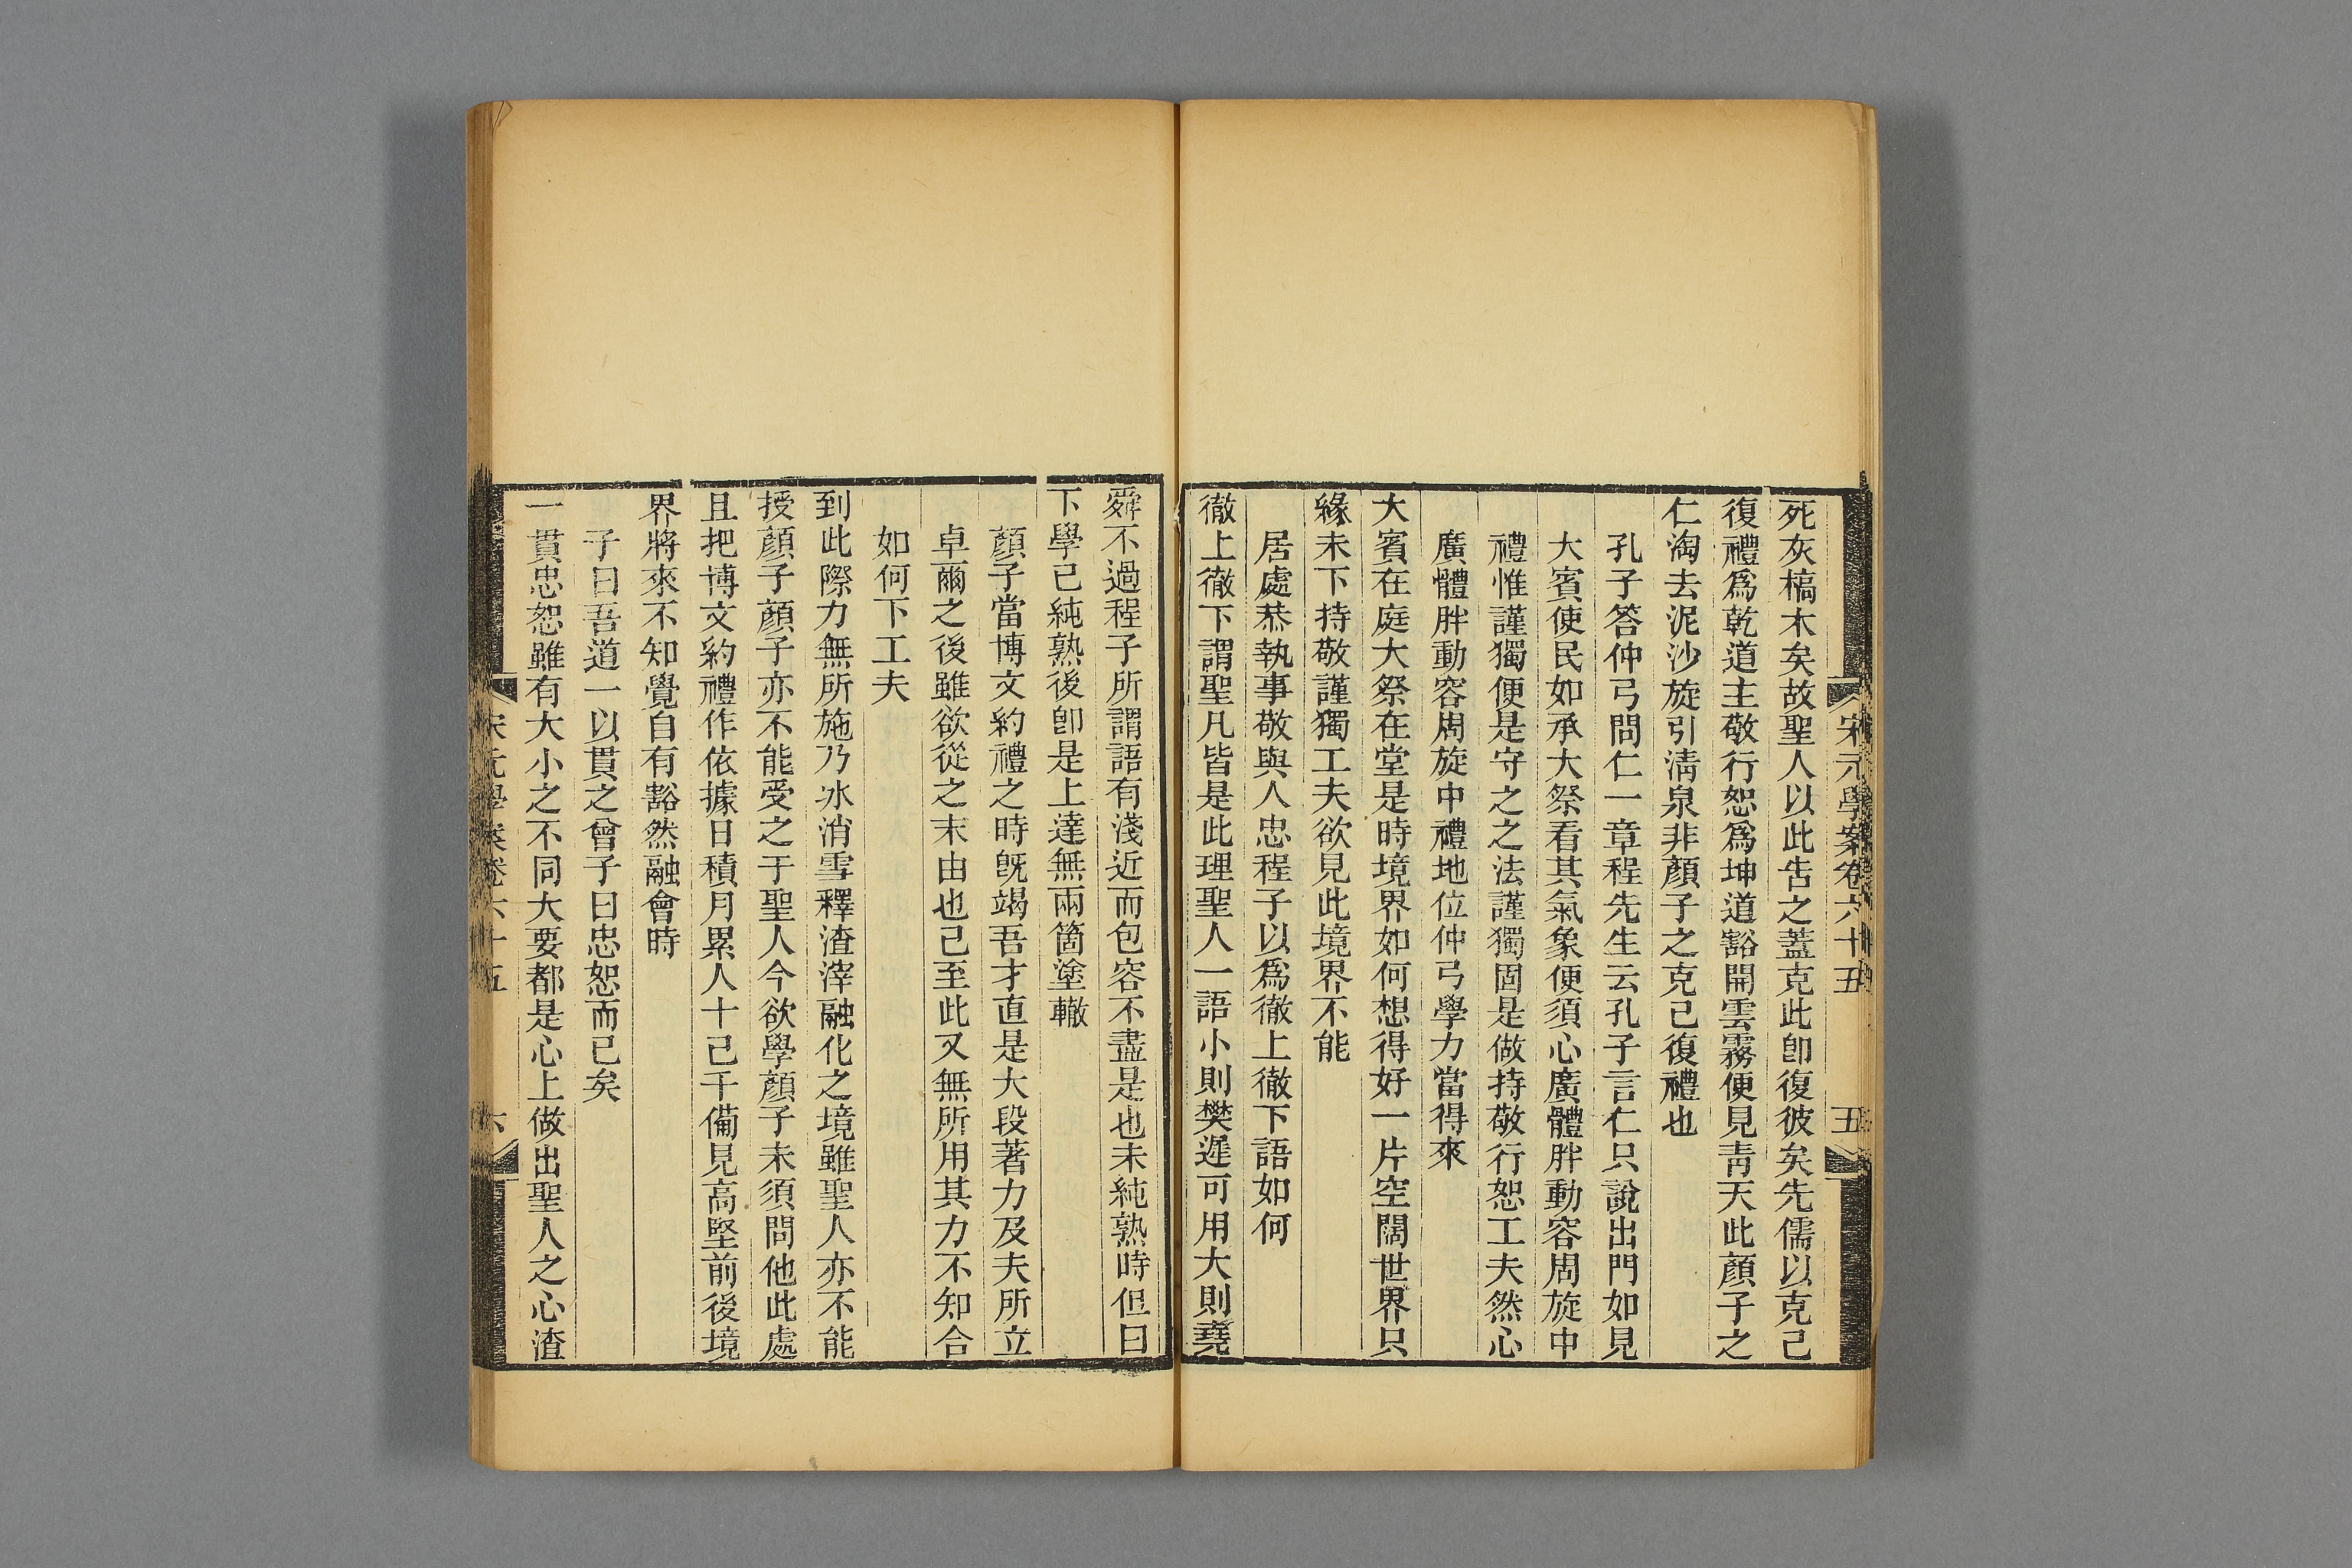 宋元學案卷六十五 五
死灰槁木矣故聖人以此告之蓋克此卽復彼矣先儒以克己
復禮爲乾道主敬行恕爲坤道豁開雲霧便見靑天此顏子之
仁淘去泥沙旋引淸泉非顏子之克己復禮也
孔子答仲弓問仁一章程先生云孔子言仁只說出門如見
大賓使民如承大祭看其氣象便須心廣體胖動容周旋中
禮惟謹獨便是守之之法謹獨固是做持敬行恕工夫然心
廣體胖動容周旋中禮地位仲弓學力當得來
大賓在庭大祭在堂是時境界如何想得好一片空闊世界只
緣未下持敬謹獨工夫欲見此境界不能
居處恭執事敬與人忠程子以爲徹上徹下語如何
徹上徹下謂聖凡皆是此理聖人一語小則樊遲可用大則堯
舜不過程子所謂語有淺近而包容不盡是也未純熟時但曰
下學已純熟後卽是上達無兩箇塗轍
顏子當博文約禮之時旣竭吾才直是大段著力及夫所立
卓爾之後雖欲從之末由也已至此又無所用其力不知合
如何下工夫
到此際力無所施乃冰消雪釋渣滓融化之境雖聖人亦不能
授顏子顏子亦不能受之于聖人今欲學顏子未須問他此處
且把博文約禮作依據日積月累人十己千備見高堅前後境
界將來不知覺自有豁然融會時
子曰吾道一以貫之曾子曰忠恕而已矣
一貫忠恕雖有大小之不同大要都是心上做出聖人之心渣
宋元學案卷六十五 六